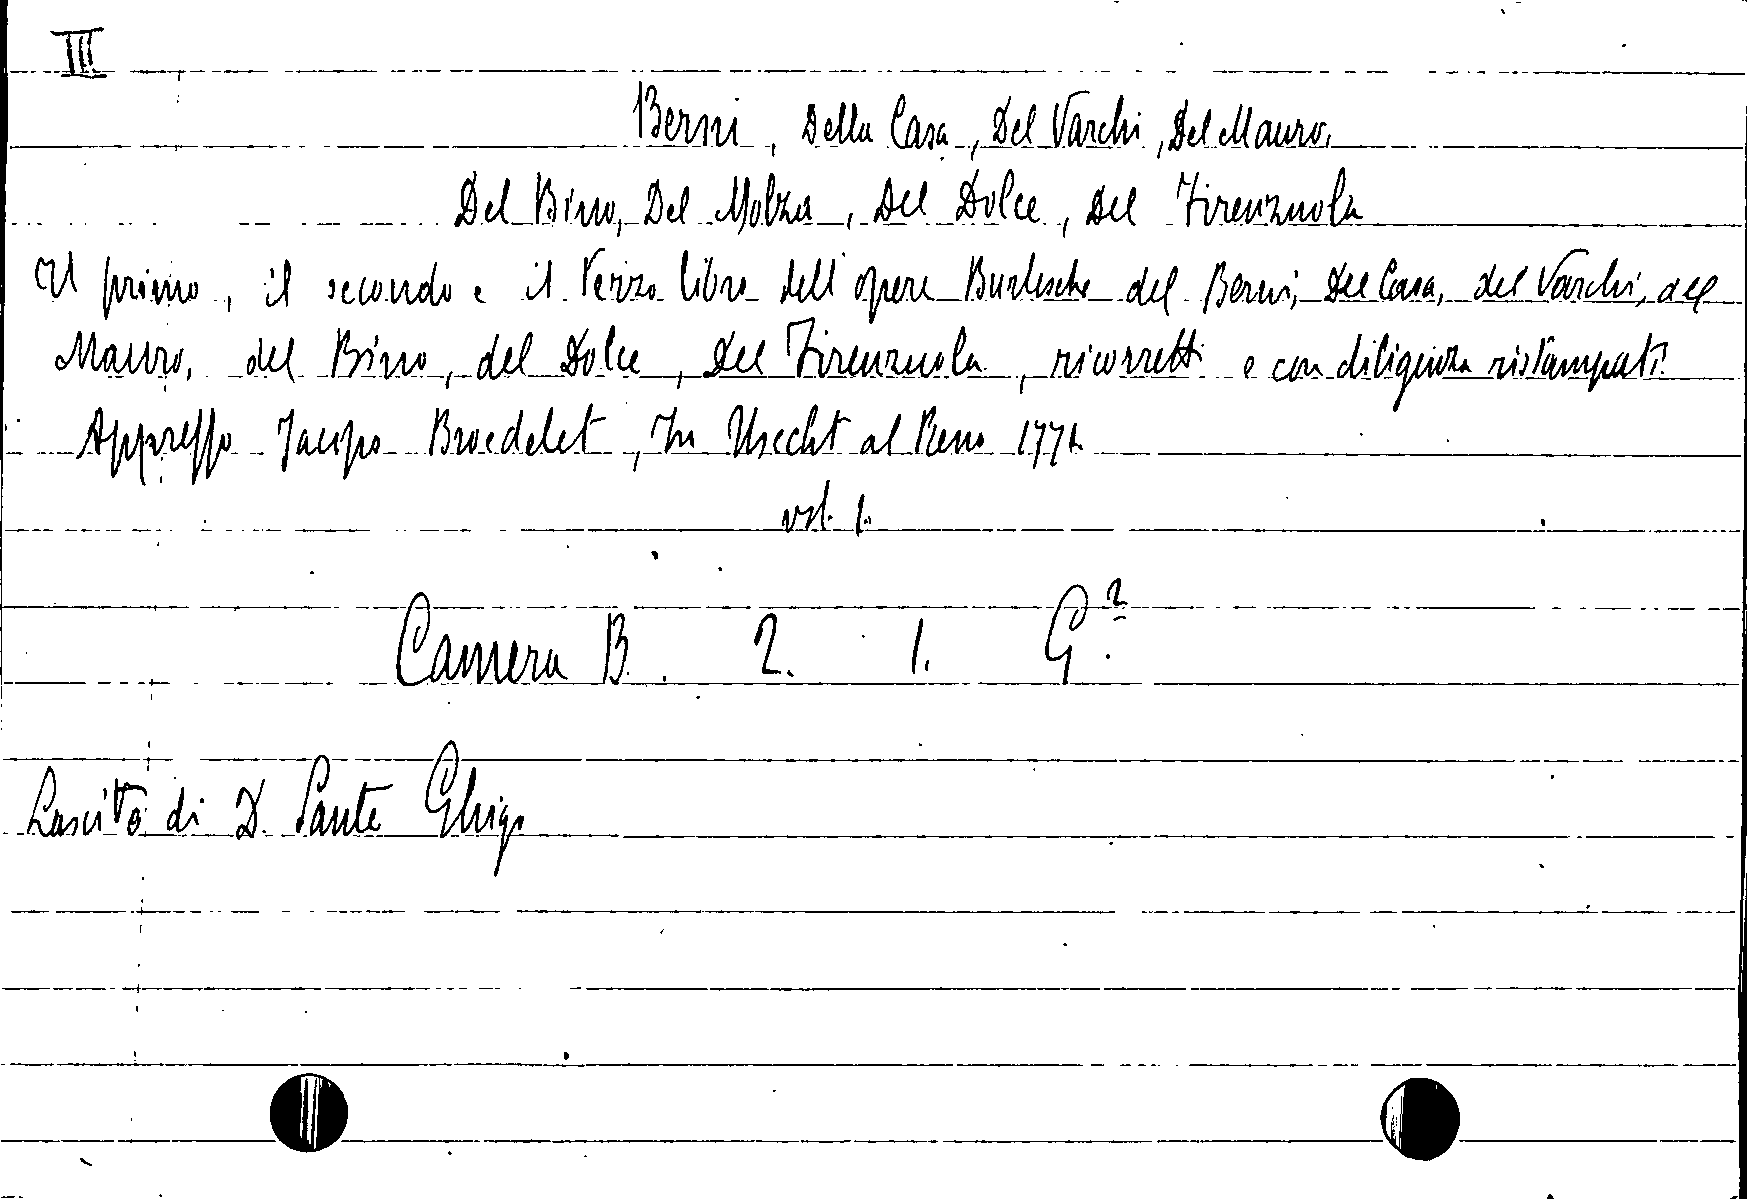 III
Berni, Della Casa, Del Varchi, Del Mauro,
Del Bino, Del Molza, Del Dolce, Del Firenzuola
Il primo, il secondo e il terzo libro dell'opere Burlesche del Berni, Del Casa, del Varchi, del
Mauro, del Bino, del Dolce, Del Firenzuola, ricorretti e con diligenza ristampati.
Appresso Jacopo Broedelet, In Utrecht al Reno 1771
vol. 1.
Camera B. 2. 1. G.²
Lascito di D. Sante Ghigo